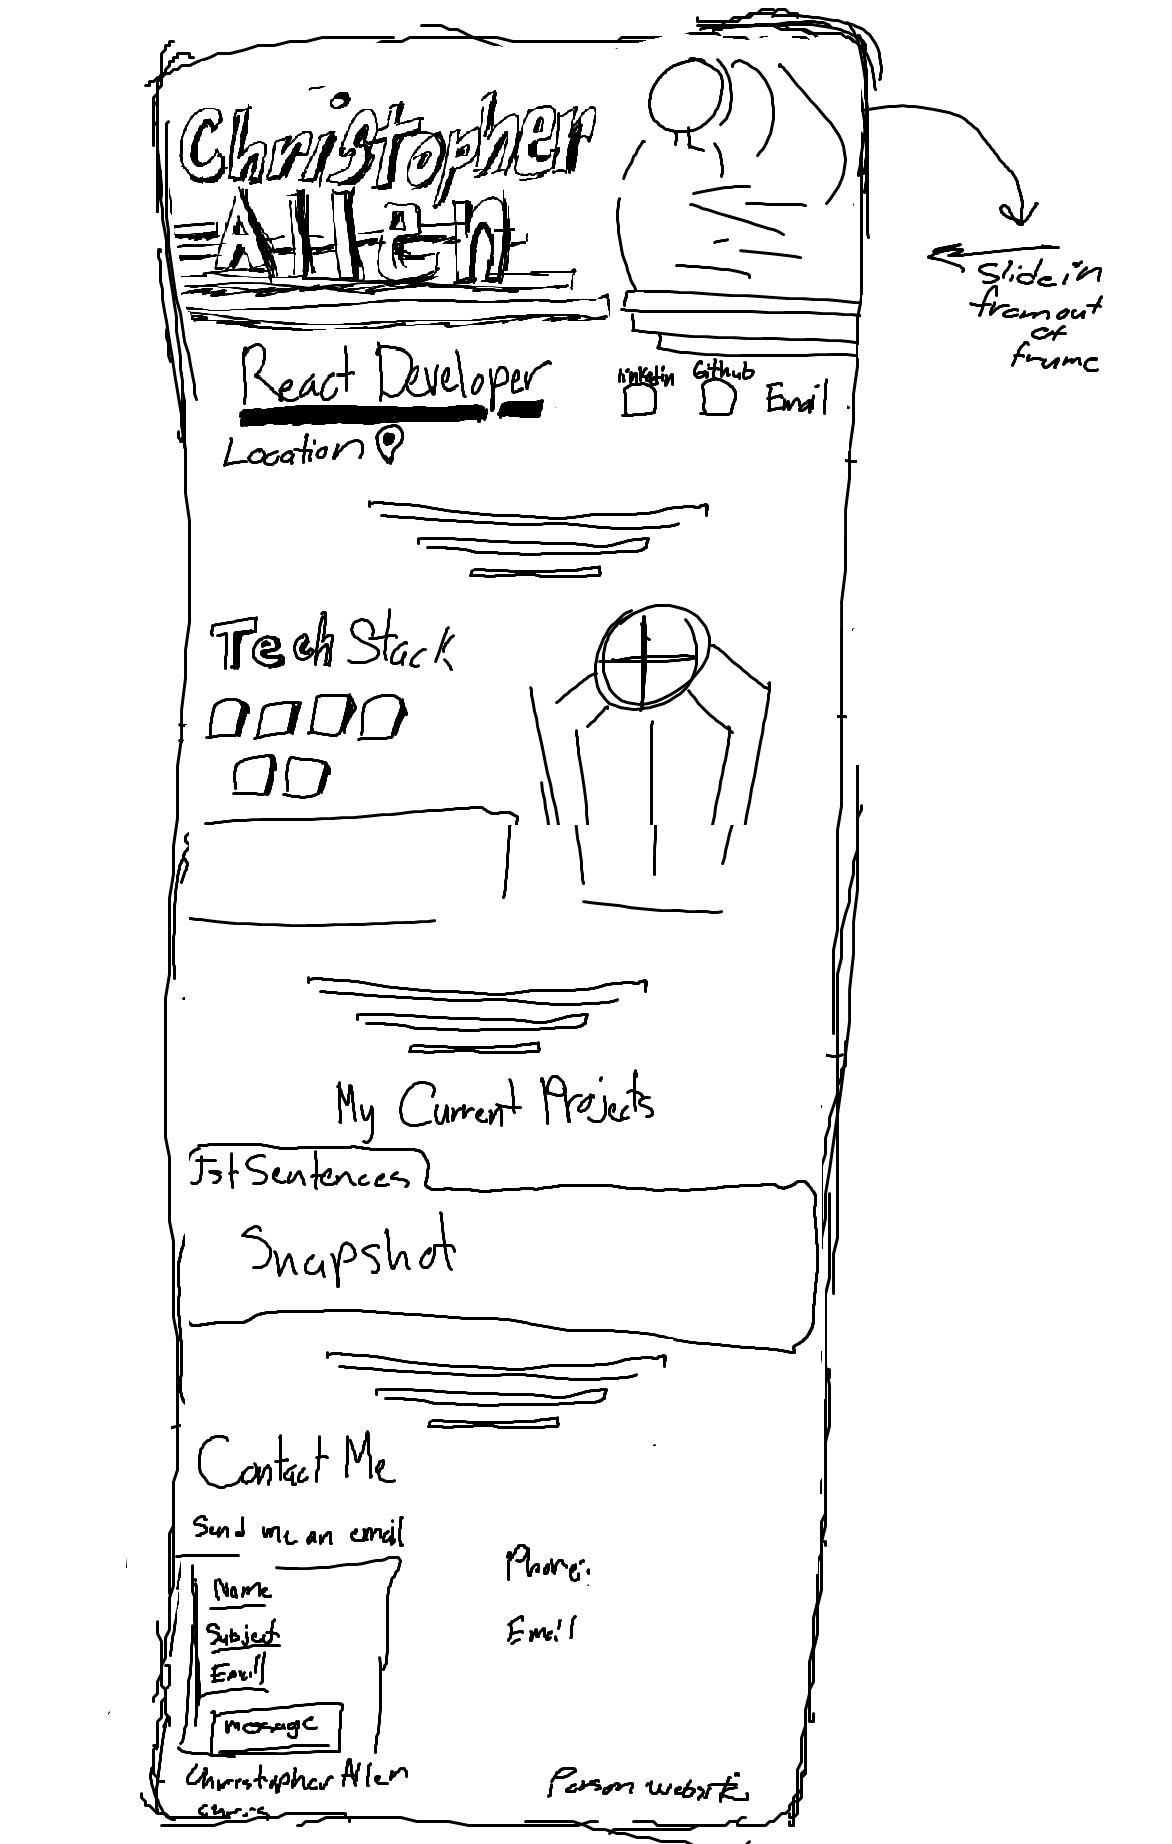 Christopher
Allen
Slide in
from out
of
frame
React Developer
linkedin Github Email
Location
Tech Stack
My Current Projects
Sentences
Snapshot
Contact Me
Send me an email
Phone:
Name
Subject
Email
Email
message
Christopher Allen
Person website
chris